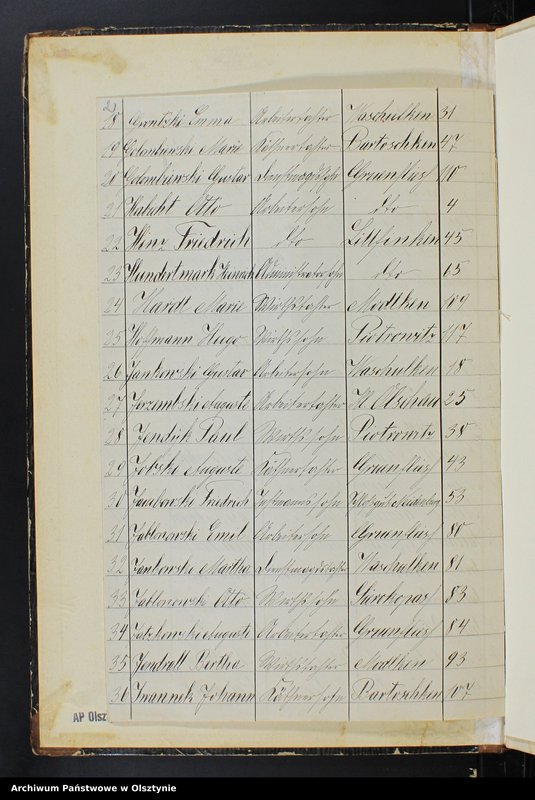 2
18 Grontzki Emma Arbeitertochter Waschulken 31
19 Golombiewski Marie Käthnertochter Bartoschken 47
20 Golombiewski Gustav Grünfließ 110
21 Habicht Otto Arbeitersohn dto 4
22 Hinz Friedrich dto Littfinken 45
23 Hundertmark Heinrich Administratorsohn dto 65
24 Hardt Marie Wirthstochter Modlken 109
25 Hoffmann Hugo Wirthssohn Piotrowitz 117
26 Jankowski Gustav Arbeitersohn Waschulken 18
27 Jerzembski Auguste Arbeitertochter Kl Olschau 25
28 Jendrik Paul Wirthssohn Piotrowitz 38
29 Auguste Käthnertochter Grünfließ 43
30 Friedrich Instmannssohn 53
31 Jablonowski Emil Arbeitersohn Grünfließ 80
32 Jankowski Martha Waschulken 81
33 Jablonowski Otto Wirthssohn 83
34 Auguste Arbeitertochter Grünfließ 84
35 Jendroll Bertha Wirthstochter Modlken 93
36 Iwannek Johann Käthnersohn Bartoschken 107
AP Olsz
Archiwum Państwowe w Olsztynie